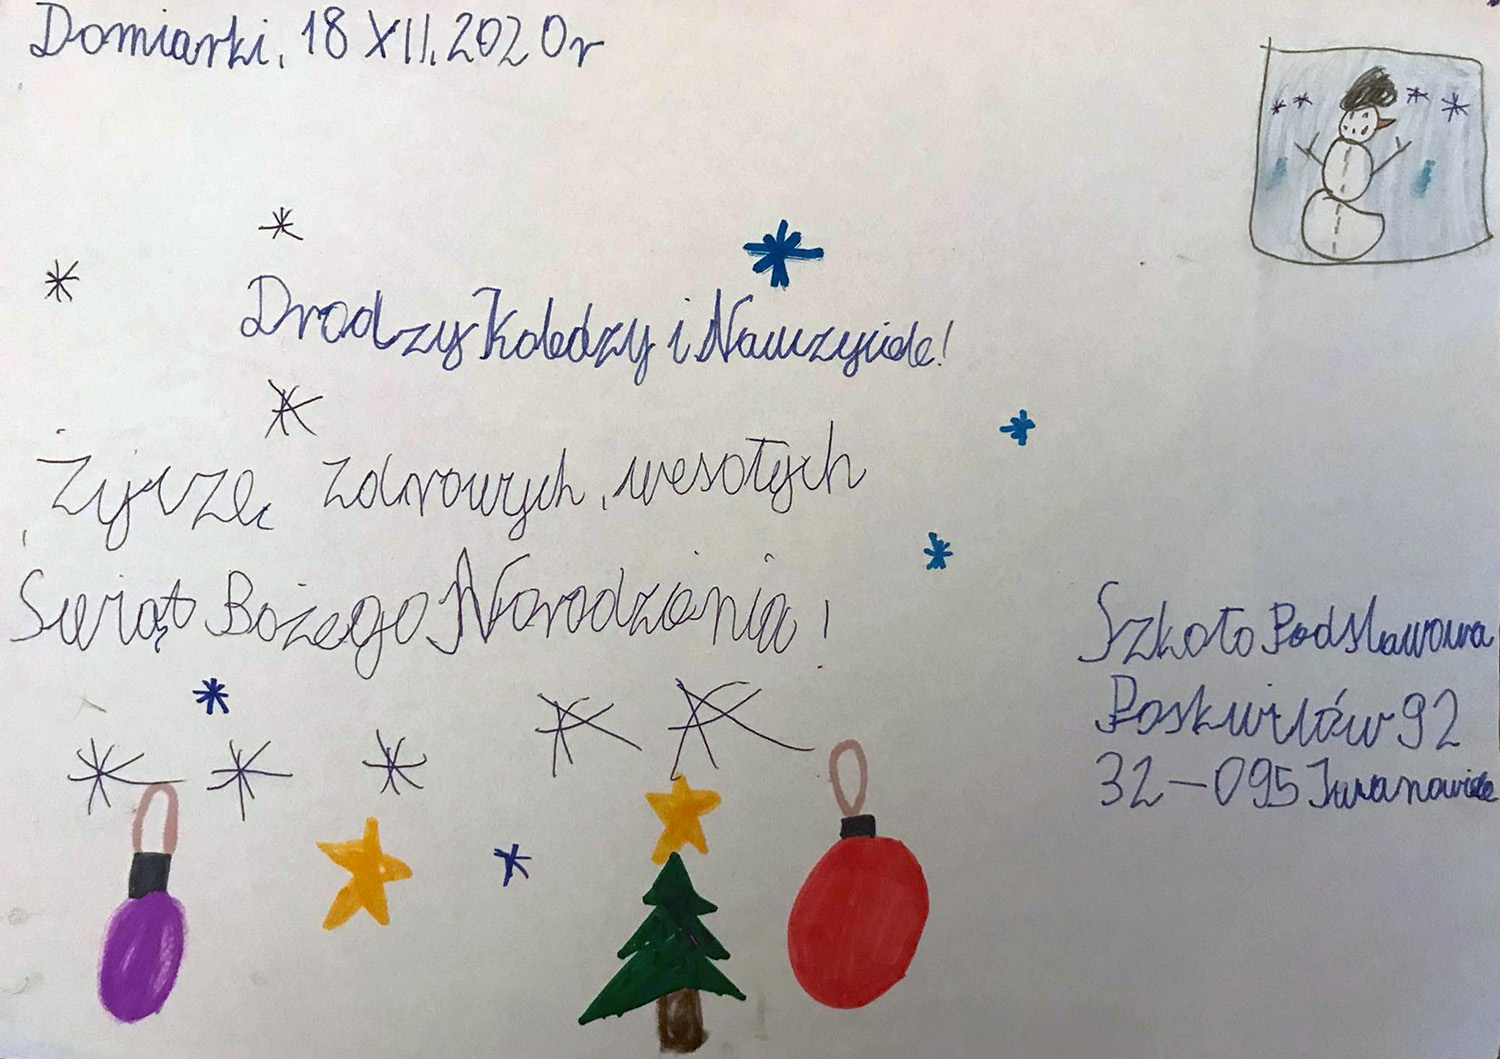 Domiarki, 18 XII, 2020r
Drodzy Koledzy i Nauczyciele!
Życzę zdrowych, wesołych
Świąt Bożego Narodzenia!
Szkoła Podstawowa
Poskwitów 92
32-095 Iwanowice